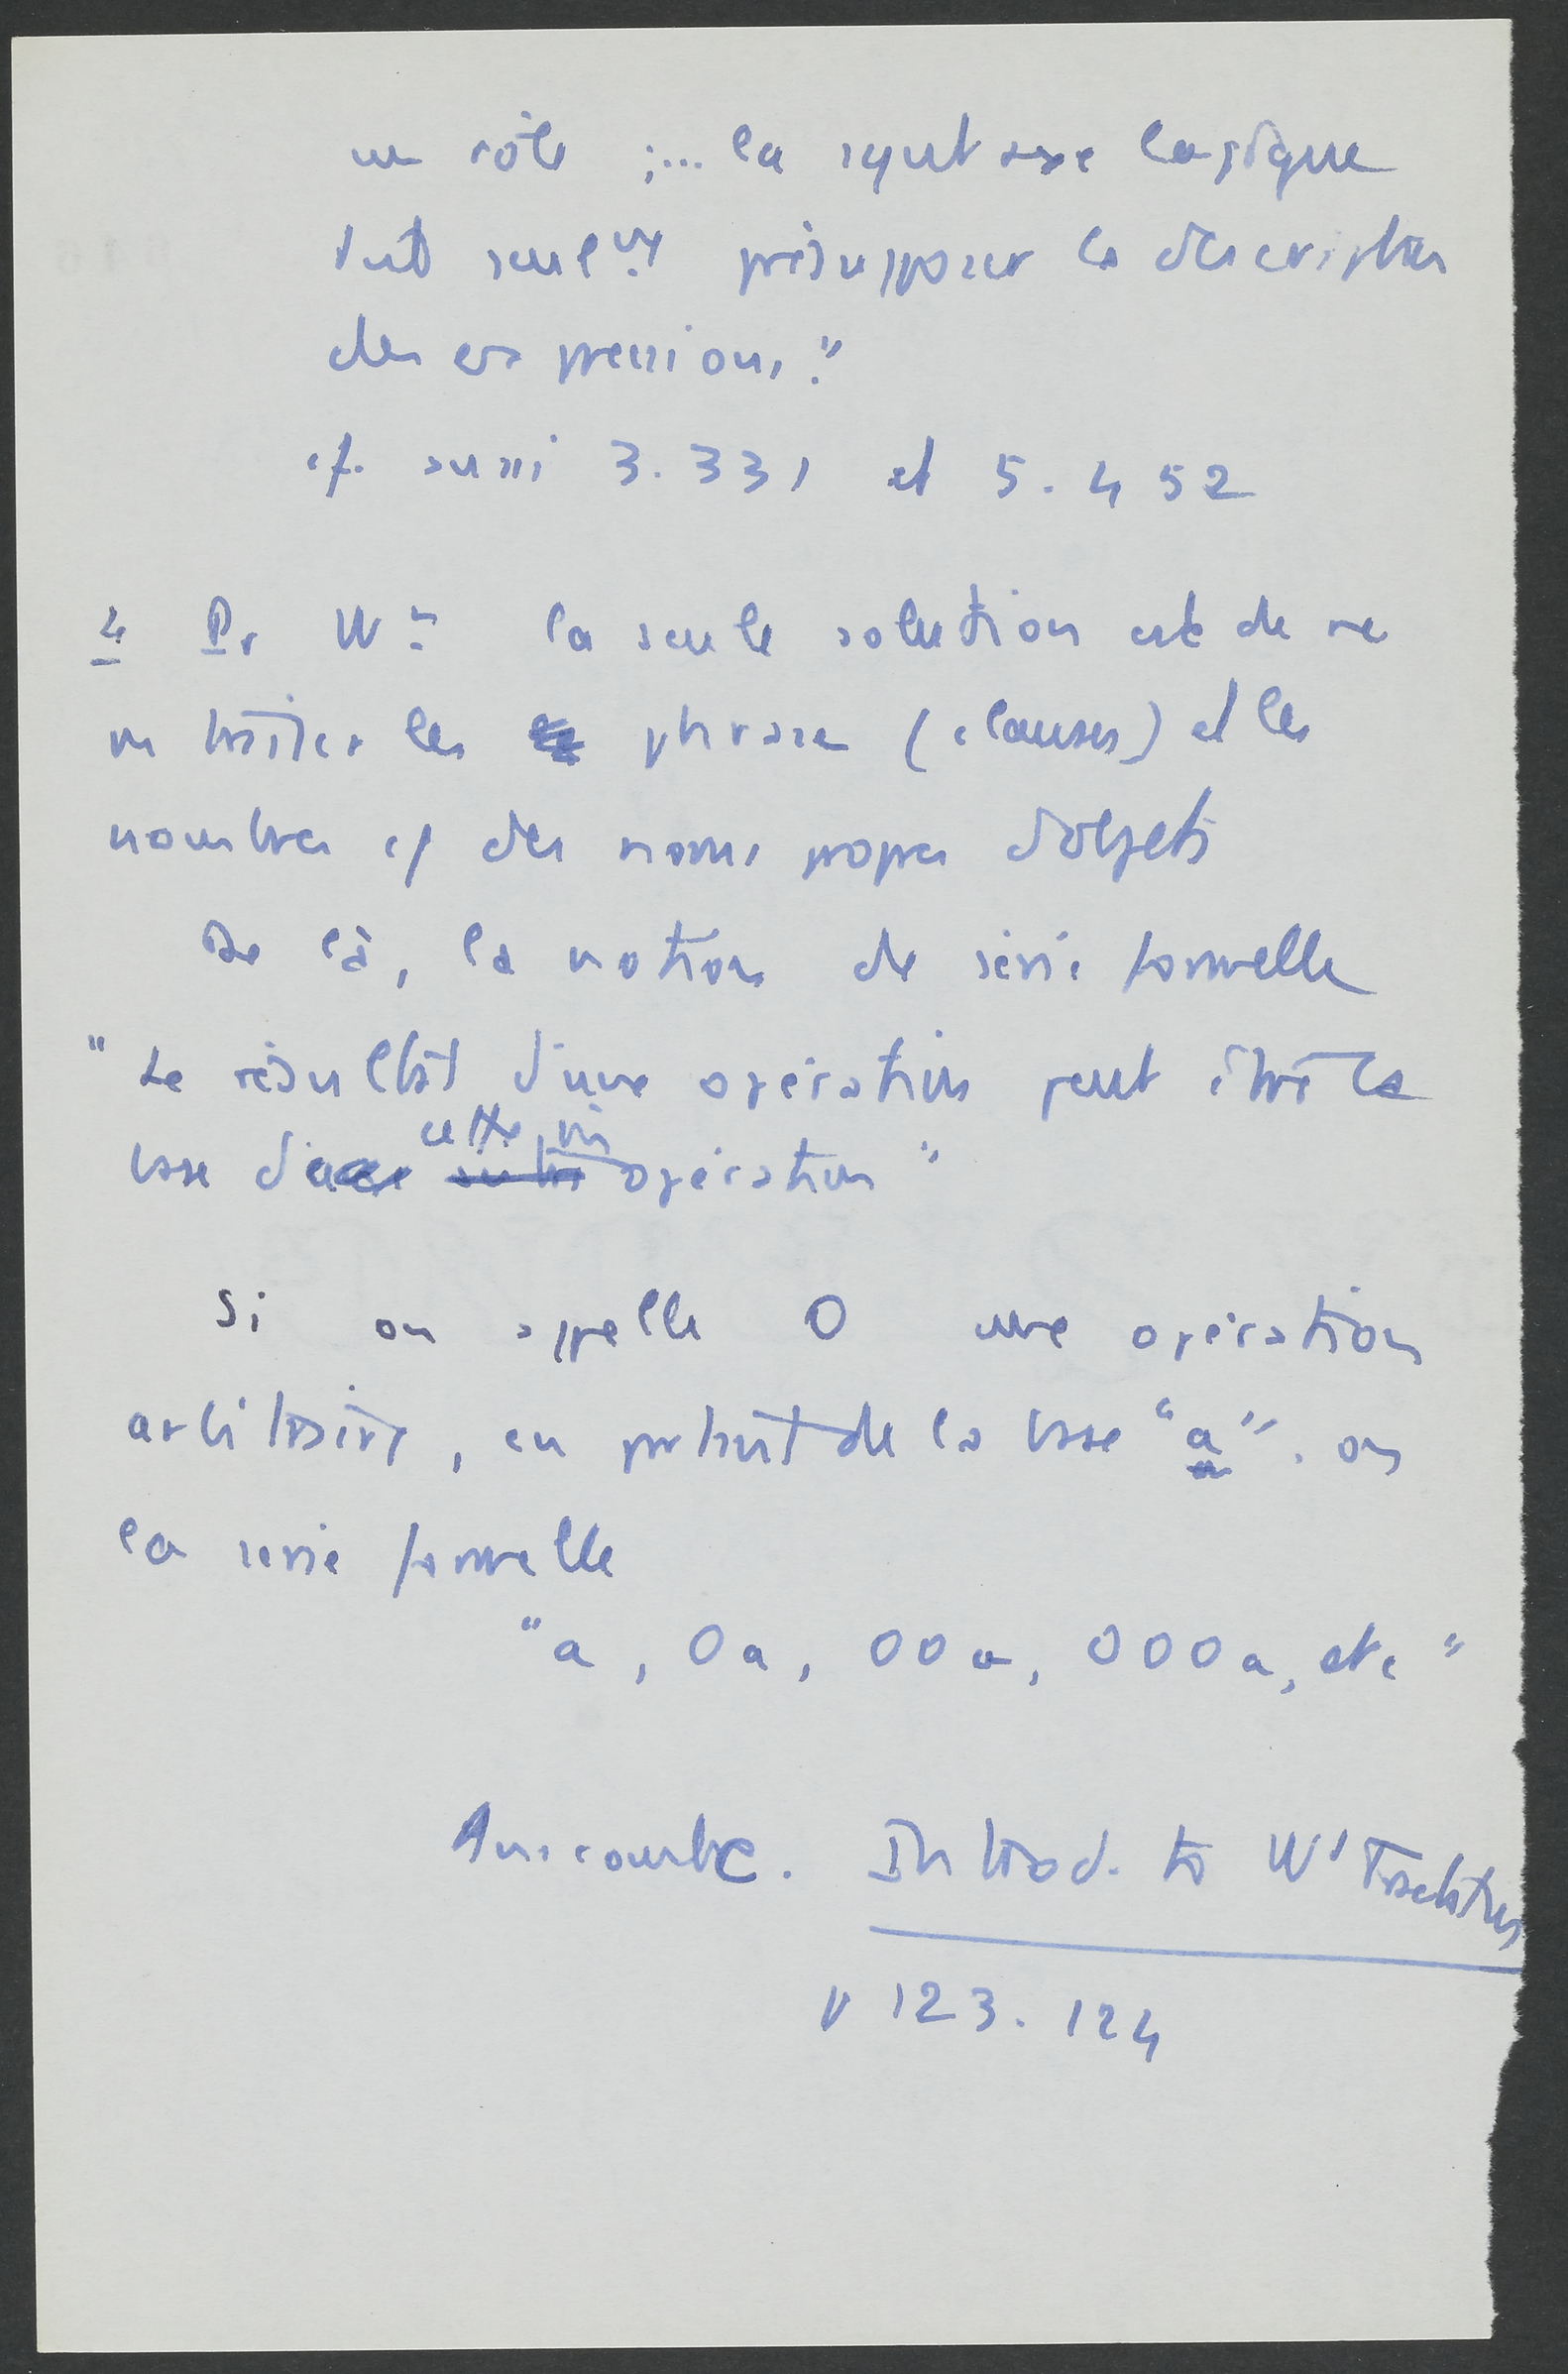 un rôle ;... la syntaxe logique
doit seulnt présupposer la description
des expressions."
cf. aussi 3.331 et 5.452
4 Pr Wn la seule solution est de ne
pas traiter les phrases (clauses) et les
nombres cf des noms propres d'objets
De là, la notion de série formelle
"Le résultat d'une opération peut être la
base de cette opération"
Si on appelle O une opération
arbitraire, en partant de la base "a". on
la série formelle
"a, Oa, OOa, OOOa, etc"
Anscombe. Introd. to W' Tractatus
p 123. 124